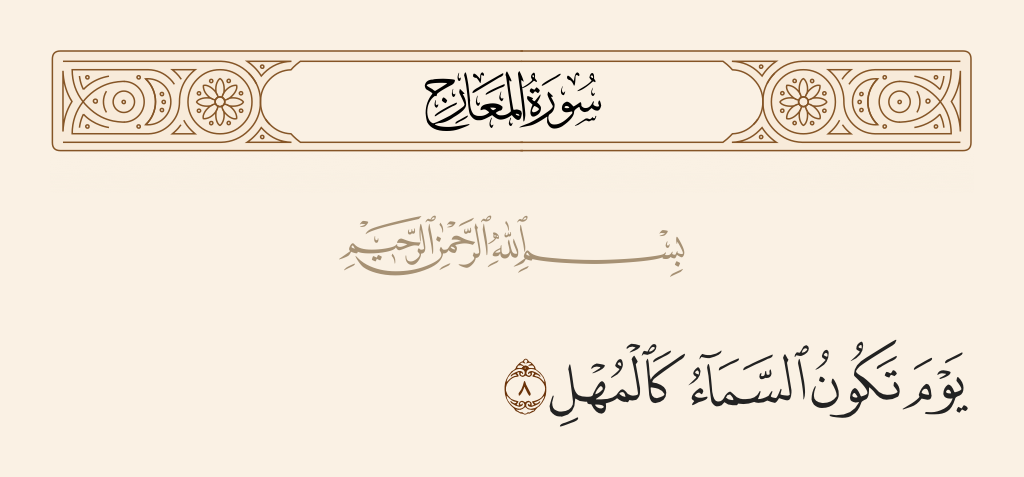 سُورَةُ المَعَارِج
بِسْمِ ٱللَّهِ ٱلرَّحْمَٰنِ ٱلرَّحِيمِ
يَوْمَ تَكُونُ ٱلسَّمَآءُ كَٱلْمُهْلِ ٨